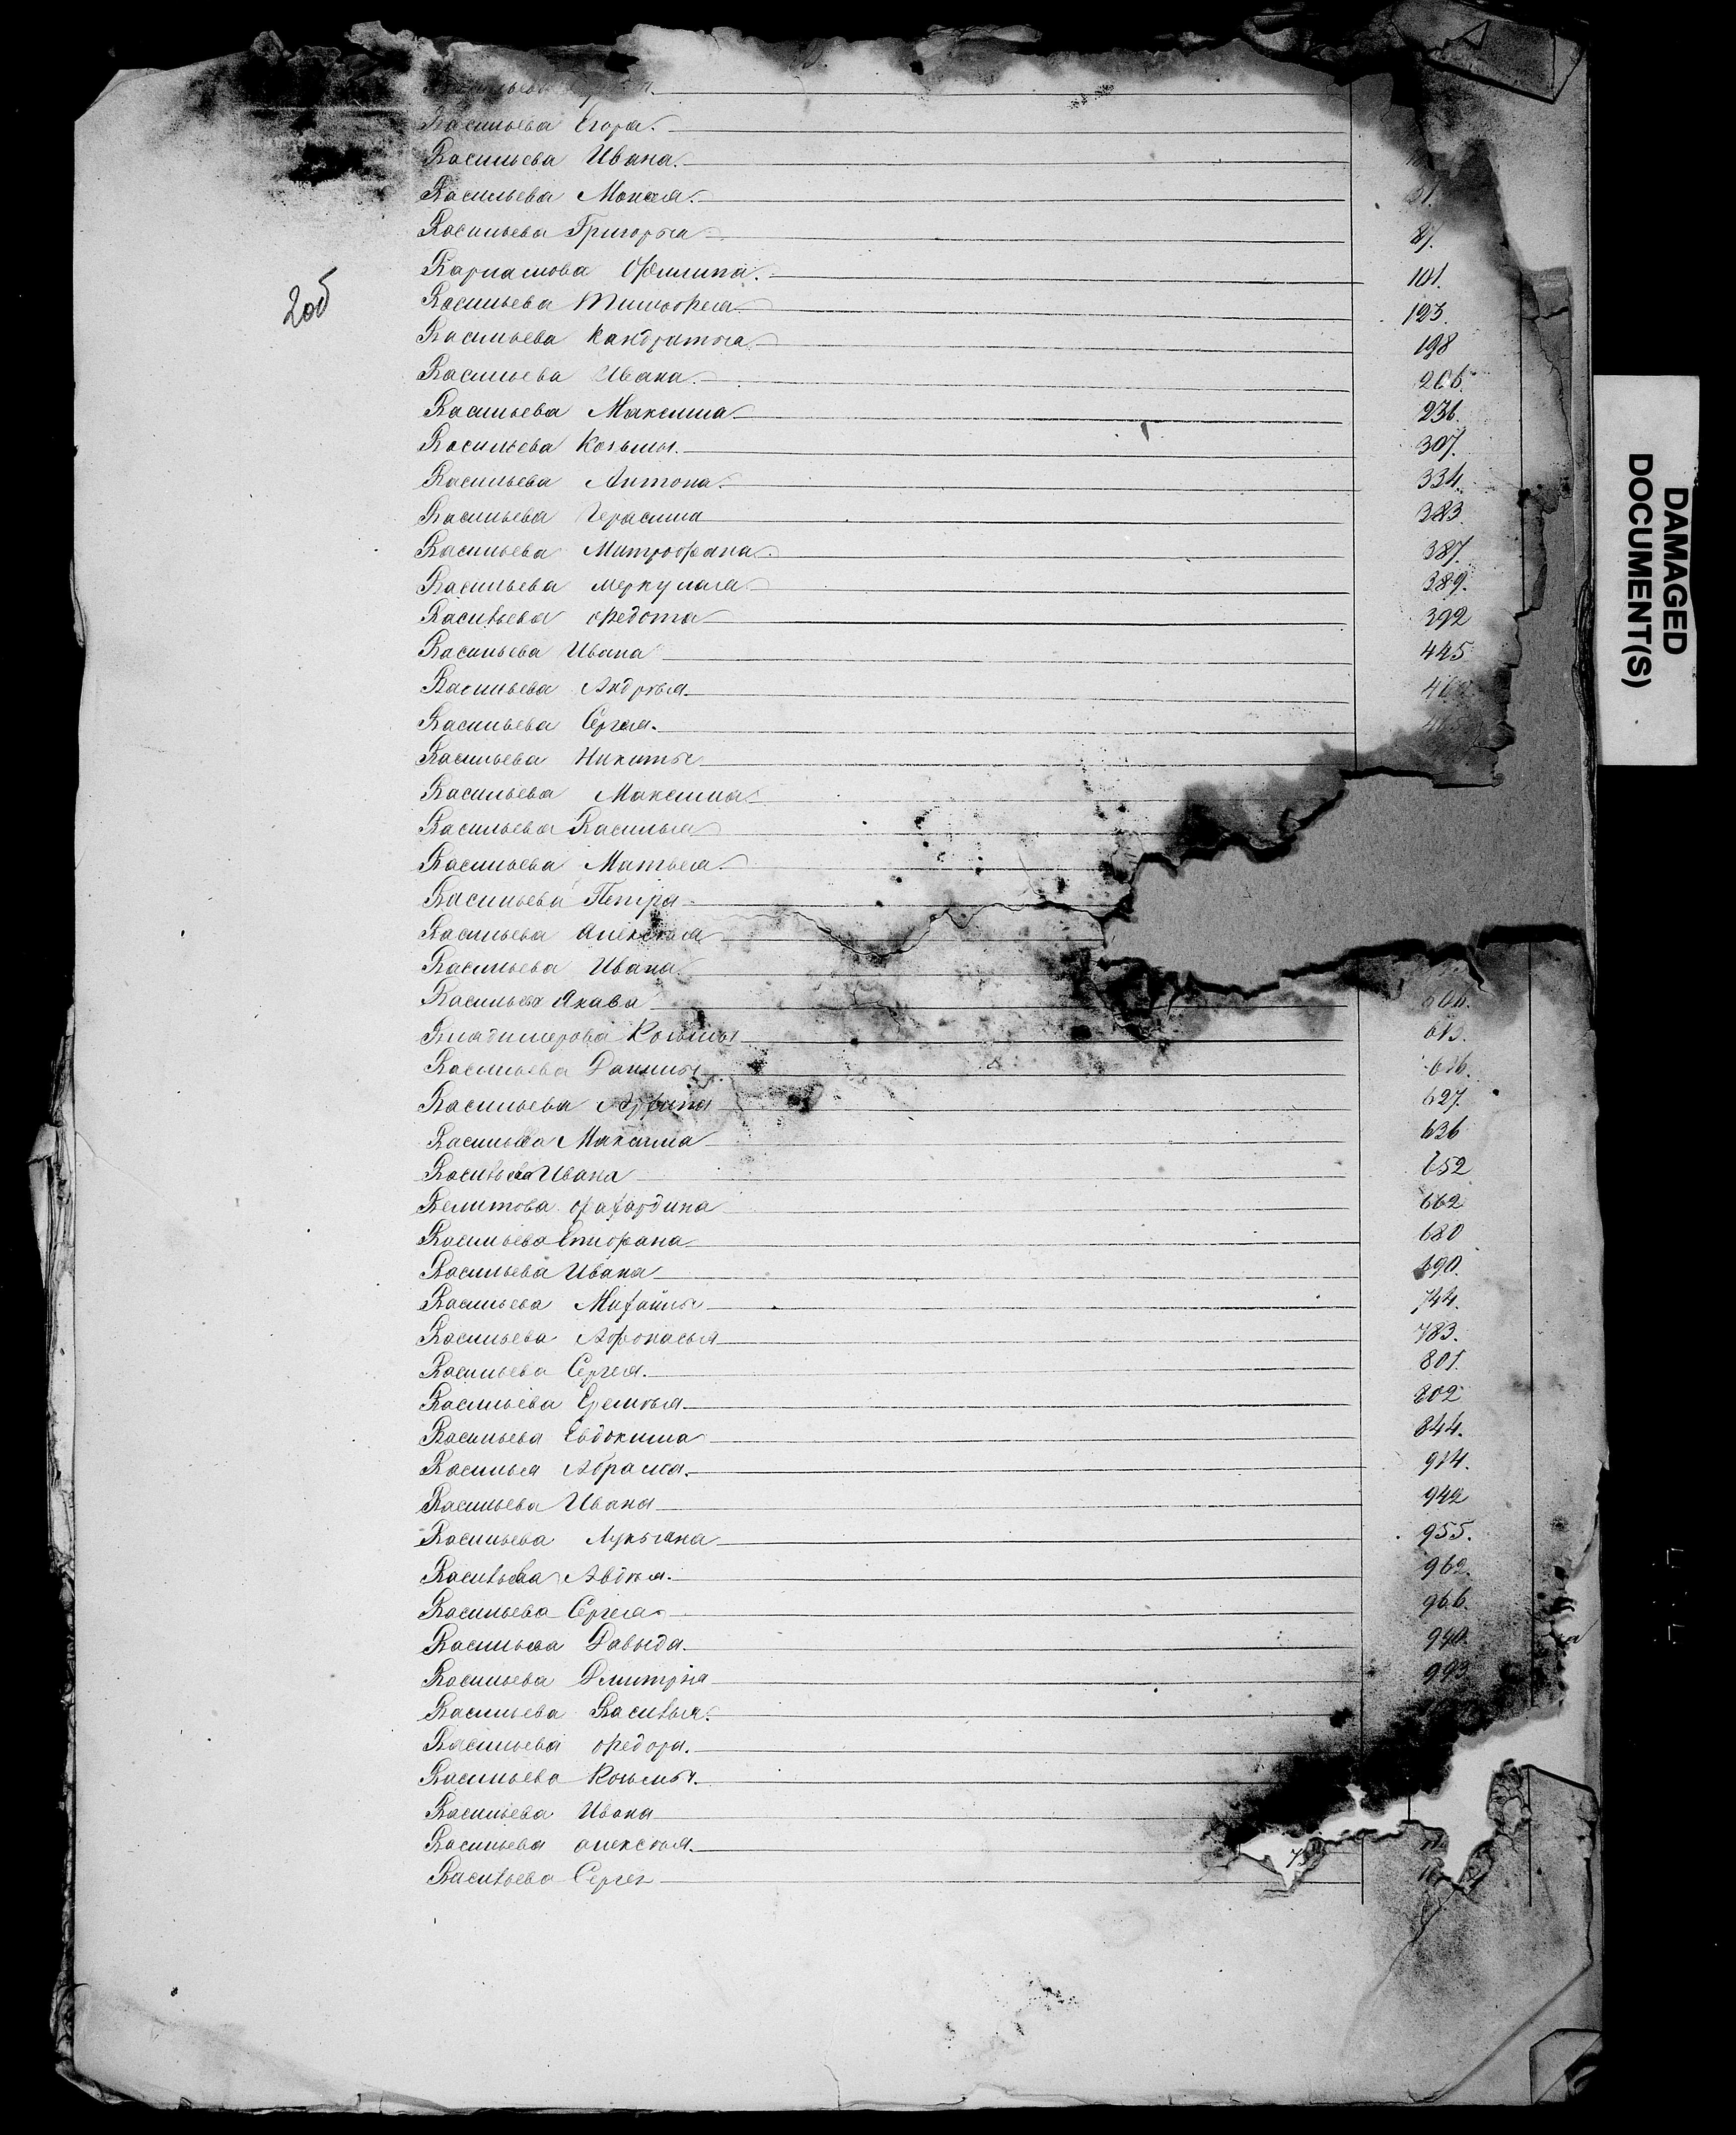 Васильева Егора.
Васильева Ивана.
Васильева Моисея. 51.
Васильева Григорья 87.
Варламова Филипа. 101.
Васильева Тимофея 123.
Васильева Кандратья 198
Васильева Ивана. 206.
Васильева Максима 236.
Васильева Козьмы. 307.
Васильева Антона. 334.
Васильева Герасима 383.
Васильева Митрофана 387.
Васильева Меркулага 389.
Васильева Федота 392
Васильева Ивана 445
Васильева Андрея.
Васильева Сергея.
Васильева Никиты
Васильева Максима
Васильева Василья
Васильева Матвея.
Васильева Петра
Васильева Алексея
Васильева Ивана
Васильева Якава
Владимерова Козьмы 613.
Васильева Данилы 616.
Васильева Архипа 627.
Васильева Максима 636
Васильева Ивана 652
Велитова Фахардина 662
Васильева Епифана 680
Васильева Ивана 690.
Васильева Михайлы 744.
Васильева Афонасья 783.
Васильева Сергея. 801.
Васильева Еремея 802.
Васильева Евдокима 844.
Василья Абрама. 914.
Васильева Ивана 942
Васильева Лукьяна 955.
Васильева Авдея. 962.
Васильева Сергея 966.
Васильева Давыда. 990.
Васильева Дмитрия 993
Васильева Василья.
Васильева Федора.
Васильева Козьмы.
Васильева Ивана
Васильева Алексея.
Васильева Сергея
2об
DAMAGED
DOCUMENT(S)